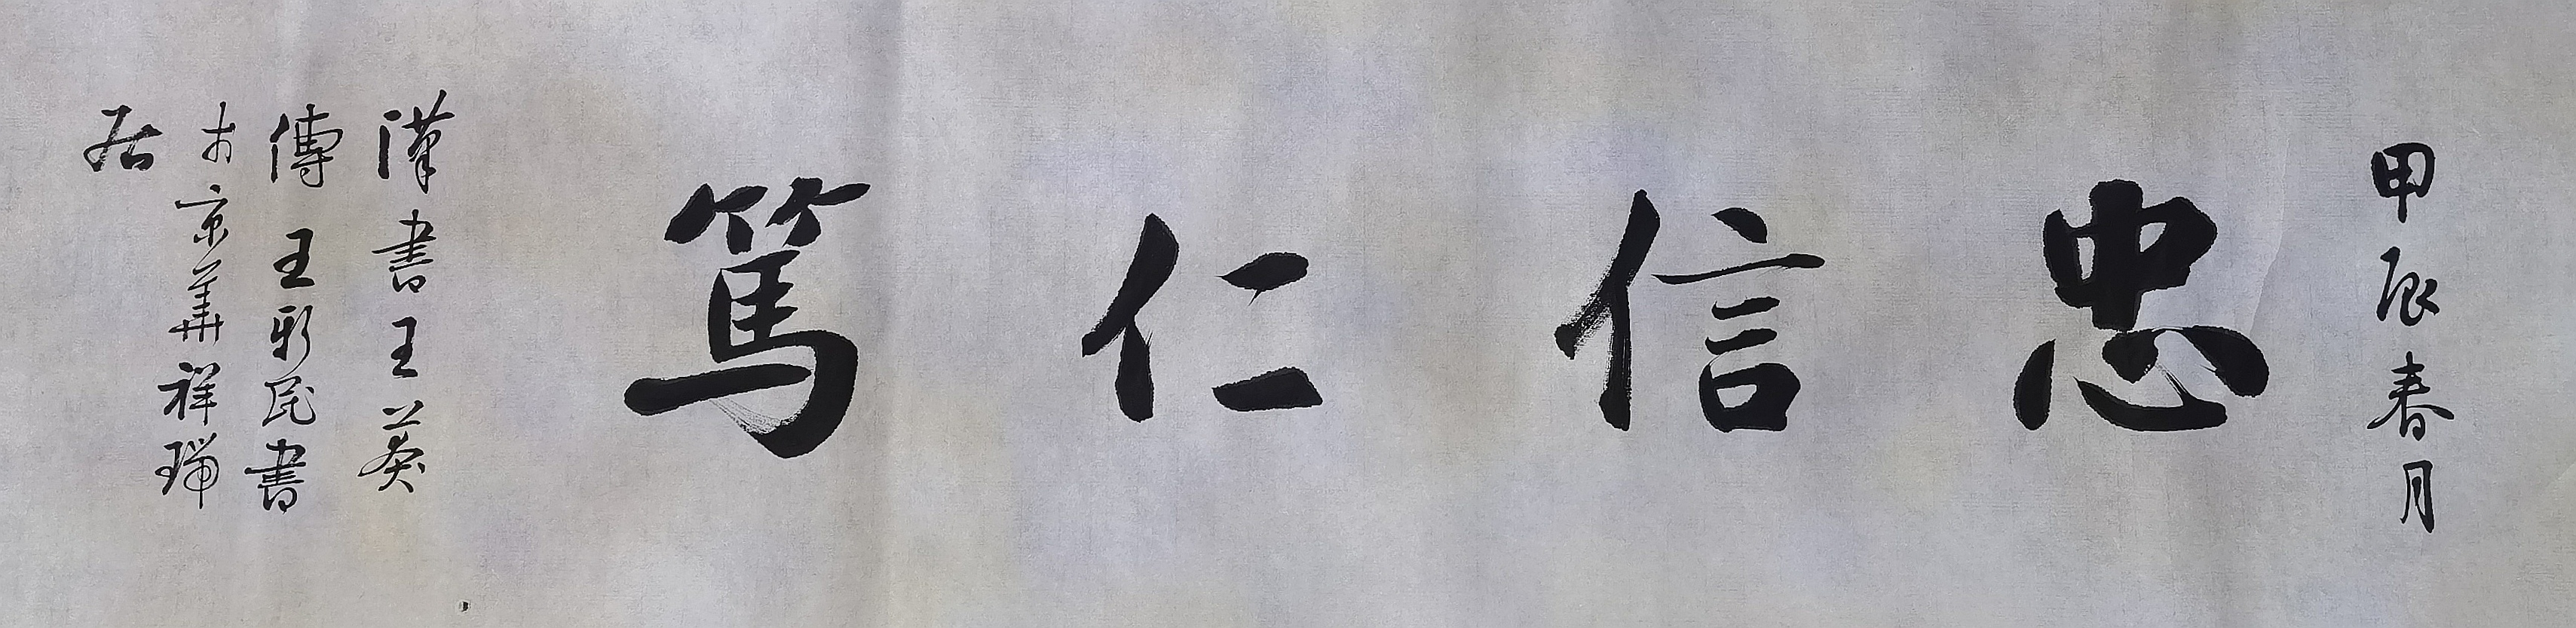 甲辰春月
忠信仁篤
漢書王英
傳王新民書
於京華祥瑞
居